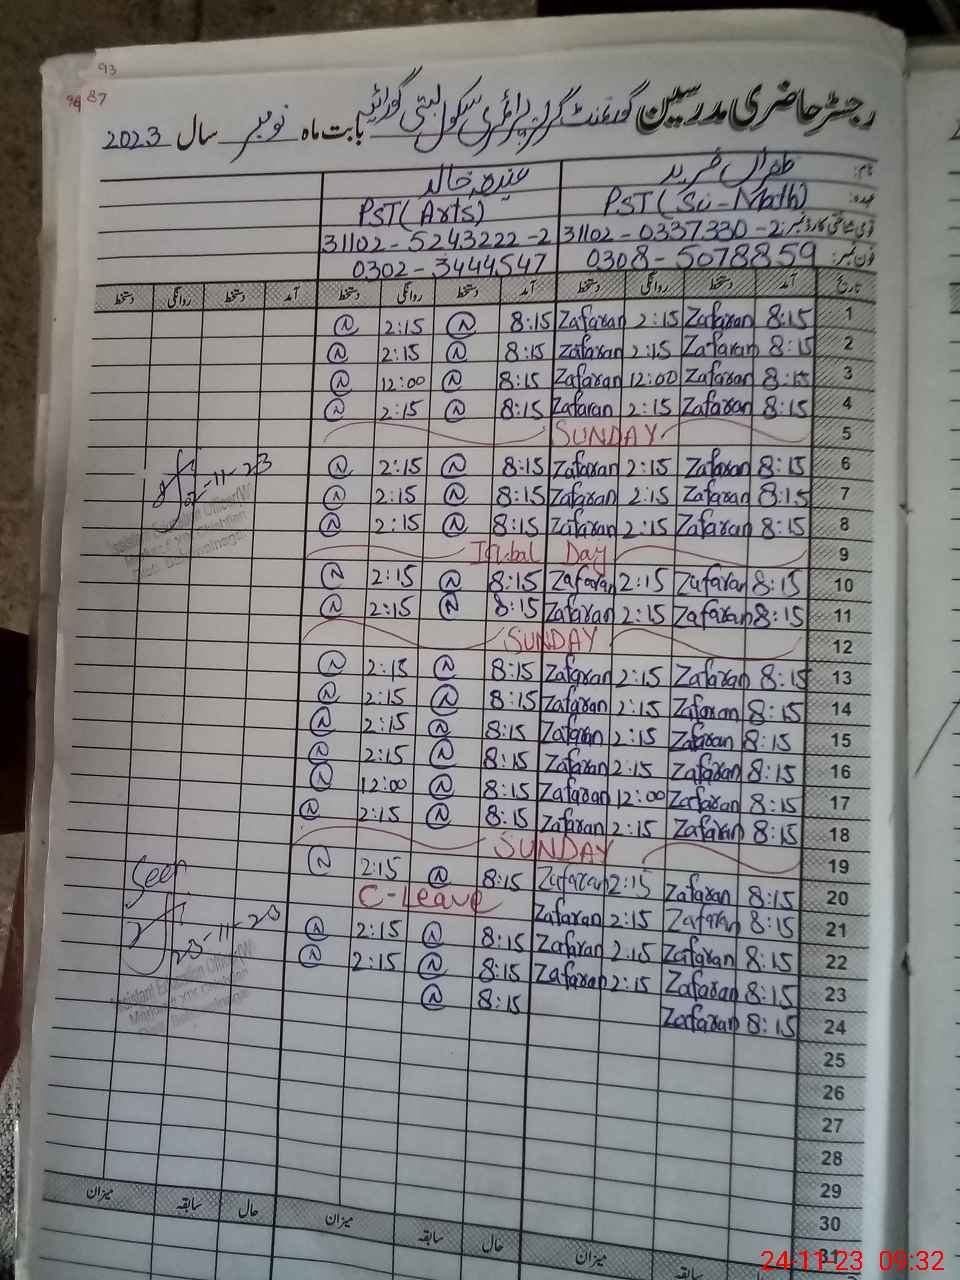 93
94 87
رجسٹر حاضری مدرسین گورنمنٹ گرلز پرائمری سکول بستی گورائیہ بابت ماہ نومبر سال 2023
نام: ظفران فرید خالد
عہدہ: PST (Sci-Math) PST (Arts)
قومی شناختی کارڈ نمبر: 31102-0337330-2 31102-5243222-2
فون نمبر: 0308-5078859 0302-3444547
تاریخ آمد دستخط روانگی دستخط آمد دستخط روانگی دستخط آمد دستخط روانگی دستخط
1 8:15 Zafaran 2:15 Zafaran 8:15 N 2:15 N
2 8:15 Zafaran 2:15 Zafaran 8:15 N 2:15 N
3 8:15 Zafaran 12:00 Zafaran 8:15 N 12:00 N
4 8:15 Zafaran 2:15 Zafaran 8:15 N 2:15 N
5 SUNDAY
6 8:15 Zafaran 2:15 Zafaran 8:15 N 2:15 N
7 8:15 Zafaran 2:15 Zafaran 8:15 N 2:15 N
8 8:15 Zafaran 2:15 Zafaran 8:15 N 2:15 N
9 Iqbal Day
10 8:15 Zafaran 2:15 Zafaran 8:15 N 2:15 N
11 8:15 Zafaran 2:15 Zafaran 8:15 N 2:15 N
12 SUNDAY
13 8:15 Zafaran 2:15 Zafaran 8:15 N 2:15 N
14 8:15 Zafaran 2:15 Zafaran 8:15 N 2:15 N
15 8:15 Zafaran 2:15 Zafaran 8:15 N 2:15 N
16 8:15 Zafaran 2:15 Zafaran 8:15 N 2:15 N
17 8:15 Zafaran 12:00 Zafaran 8:15 N 12:00 N
18 8:15 Zafaran 2:15 Zafaran 8:15 N 2:15 N
19 SUNDAY
20 8:15 Zafaran 2:15 Zafaran 8:15 N 2:15 N
21 8:15 Zafaran 2:15 Zafaran C-Leave
22 8:15 Zafaran 2:15 Zafaran 8:15 N 2:15 N
23 8:15 Zafaran 2:15 Zafaran 8:15 N 2:15 N
24 8:15 Zafaran 8:15 N
25
26
27
28
29
30
31
-11-23
Assistant Education Officer (W)
Seen
23-11-23
Assistant Education Officer (W)
میزان سابقہ حال میزان سابقہ حال میزان سابقہ
24-11-23 09:32